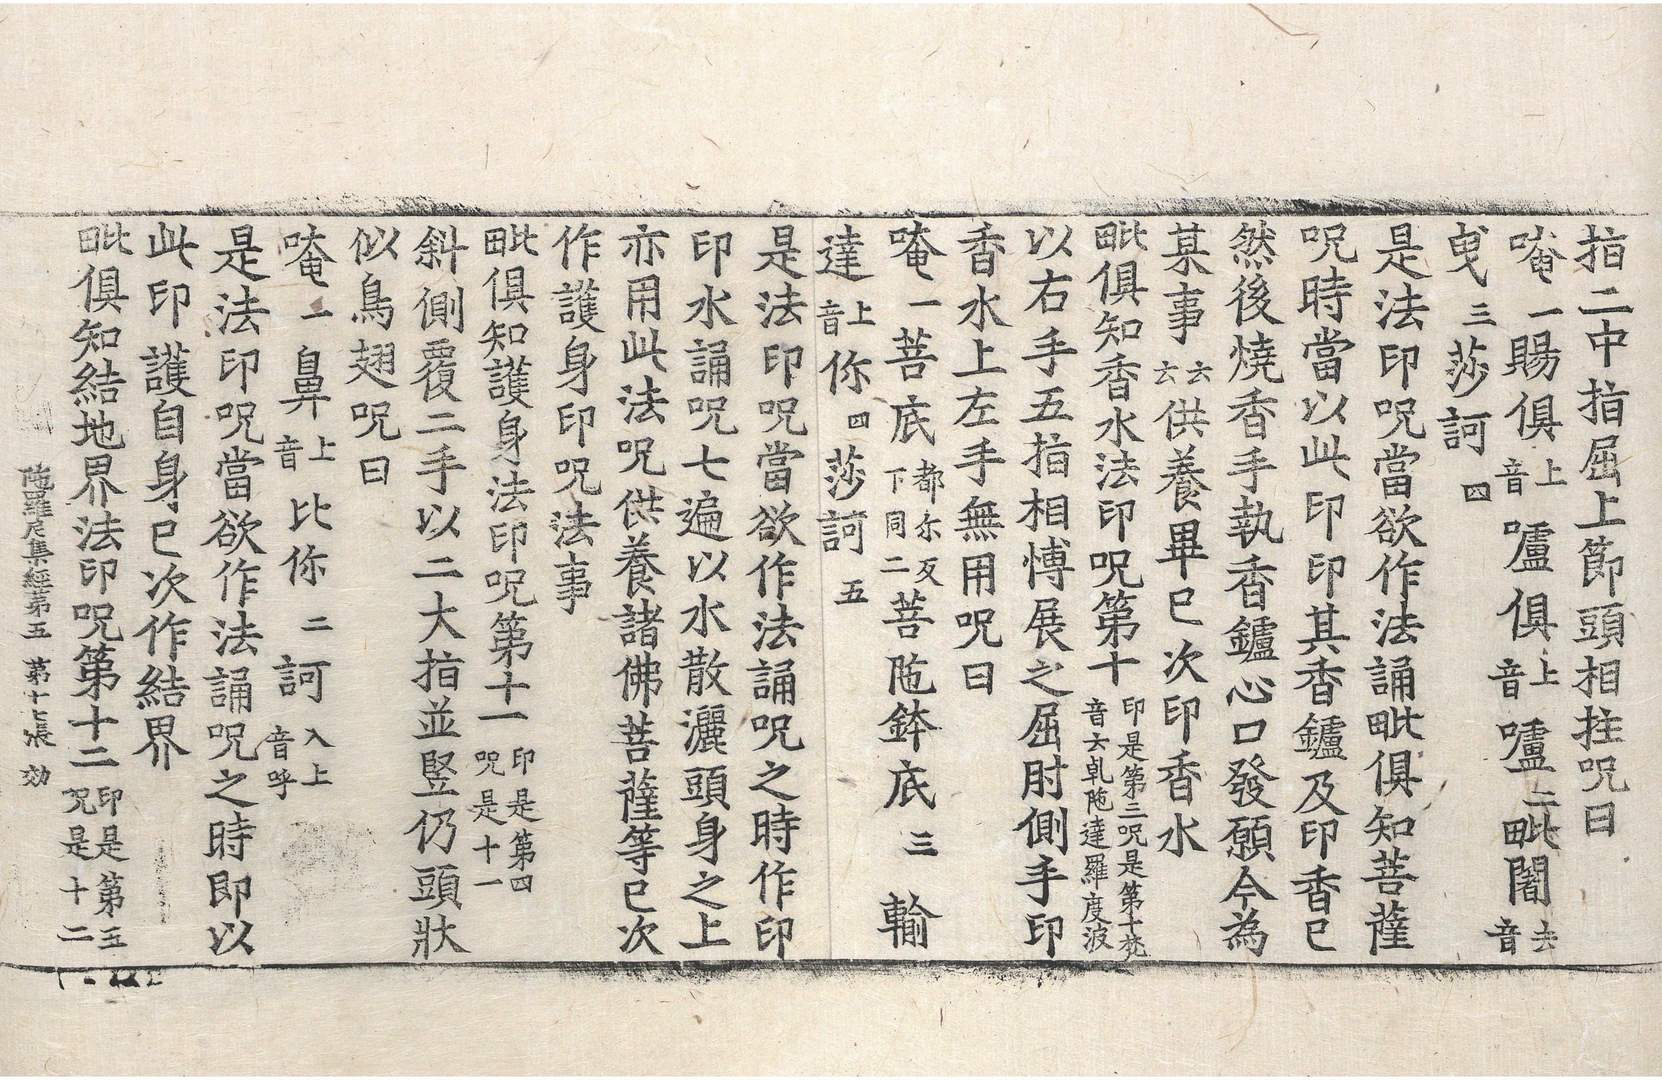 指二中指屈上節頭相拄呪曰
唵一賜俱上音嚧俱上音嚧二毗闍去音
曳三莎訶四
是法印呪當欲作法誦毗俱知菩薩
呪時當以此印印其香鑪及印香已
然後燒香手執香鑪心口發願今為
某事云云供養畢已次印香水
毗俱知香水法印呪第十印是第三呪是第十梵音云乹陁達羅度波
以右手五指相博展之屈肘側手印
香水上左手無用呪曰
唵一菩底都尒反下同二菩陁鉢底三輸
達上音你四莎訶五
是法印呪當欲作法誦呪之時作印
印水誦呪七遍以水散灑頭身之上
亦用此法呪供養諸佛菩薩等已次
作護身印呪法事
毗俱知護身法印呪第十一印是第四呪是十一
斜側覆二手以二大指並竪仍頭狀
似鳥翅呪曰
唵一鼻上音比你二訶入上音呼
是法印呪當欲作法誦呪之時即以
此印護自身已次作結界
毗俱知結地界法印呪第十二印是第五呪是十二
陁羅尼集經第五 第十七張 効